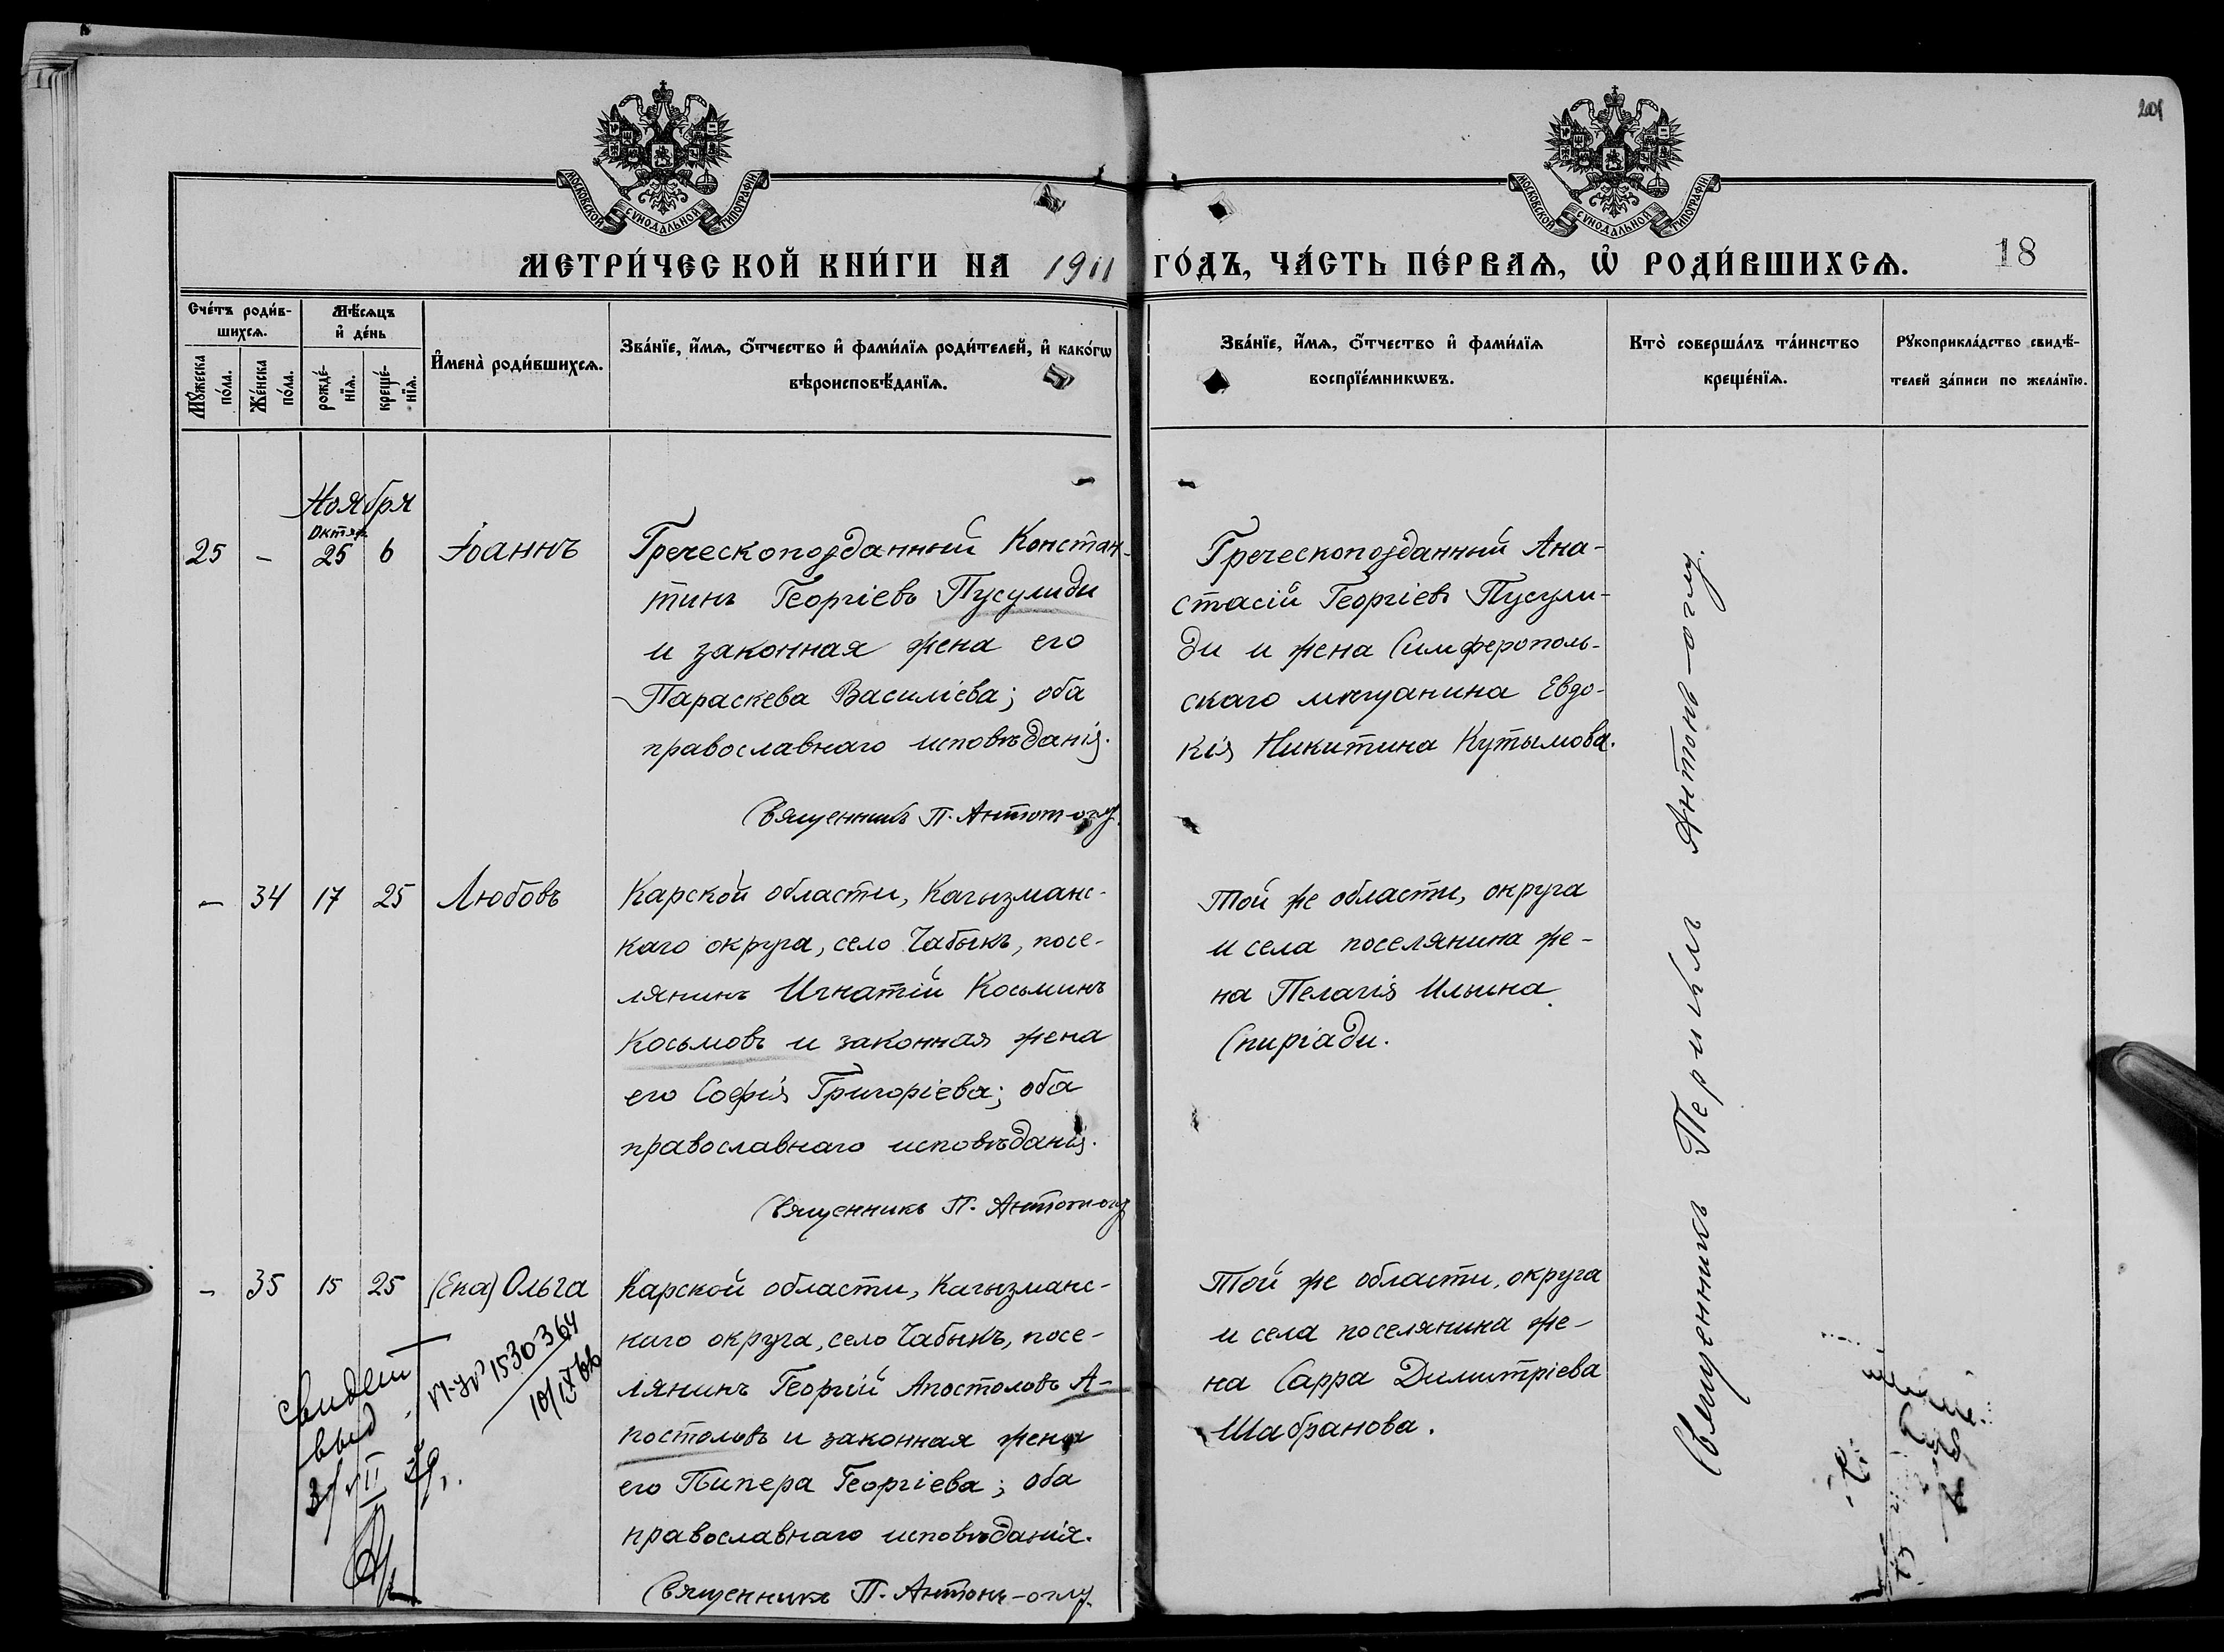 201
МОСКОВСКОЙ СѴНОДАЛЬНОЙ ТИПОГРАФІИ.
МОСКОВСКОЙ СѴНОДАЛЬНОЙ ТИПОГРАФІИ.
МЕТРИ́ЧЕСКОЙ КНИ́ГИ НА 1911 ГО́ДЪ, ЧА́СТЬ ПЕ́РВАѦ, Ѡ҆ РОДИ́ВШИХСѦ. 18
Сче́тъ роди́в-
шихсѧ.
Мѣ́сѧцъ
и҆ де́нь
Мꙋ́жеска
по́ла.
Же́нска
по́ла.
рожде́-
нїѧ.
креще́-
нїѧ.
И҆мена̀ роди́вшихсѧ.
Зва́нїе, и҆́мѧ, ѻ҆́тчество и҆ фами́лїѧ роди́телей, и҆ како́гѡ
вѣроисповѣ́данїѧ.
Зва́нїе, и҆́мѧ, ѻ҆́тчество и҆ фами́лїѧ
воспрїе́мникѡвъ.
Кто̀ соверша́лъ та́инство
креще́нїѧ.
Рꙋкоприкла́дство свидѣ́-
телей за́писи по жела́нїю.
Ноября
Октяр
25 – 25 6 Іоаннъ
Греческоподданный Констан-
тинъ Георгіевъ Пусулиди
и законная жена его
Параскева Василіева; оба
православнаго исповѣданія.
Священникъ П. Антонъ-оглу.
Греческоподданный Ана-
стасій Георгіевъ Пусули-
ди и жена Симферополь-
скаго мѣщанина Евдо-
кія Никитина Кутымова.
– 34 17 25 Любовь
Карской области, Кагызманс-
каго округа, село Чабыкъ, посе-
лянинъ Игнатій Косьминъ
Косьмовъ и законная жена
его Софія Григоріева; оба
православнаго исповѣданія.
Священникъ П. Антонъ-оглу
Той же области, округа
и села поселянина же-
на Пелагія Ильина
Спиріади.
– 35 15 25 (Ека) Ольга
Карской области, Кагызманс-
каго округа, село Чабыкъ, посе-
лянинъ Георгій Апостоловъ А-
постоловъ и законная жена
его Пипера Георгіева; оба
православнаго исповѣданія.
Священникъ П. Антонъ-оглу.
Той же области, округа
и села поселянина же-
на Сарра Димитріева
Шабранова.
Священникъ Периклъ Антонъ-оглу.
Свидет
выд
№ 1530364
10/IX 66